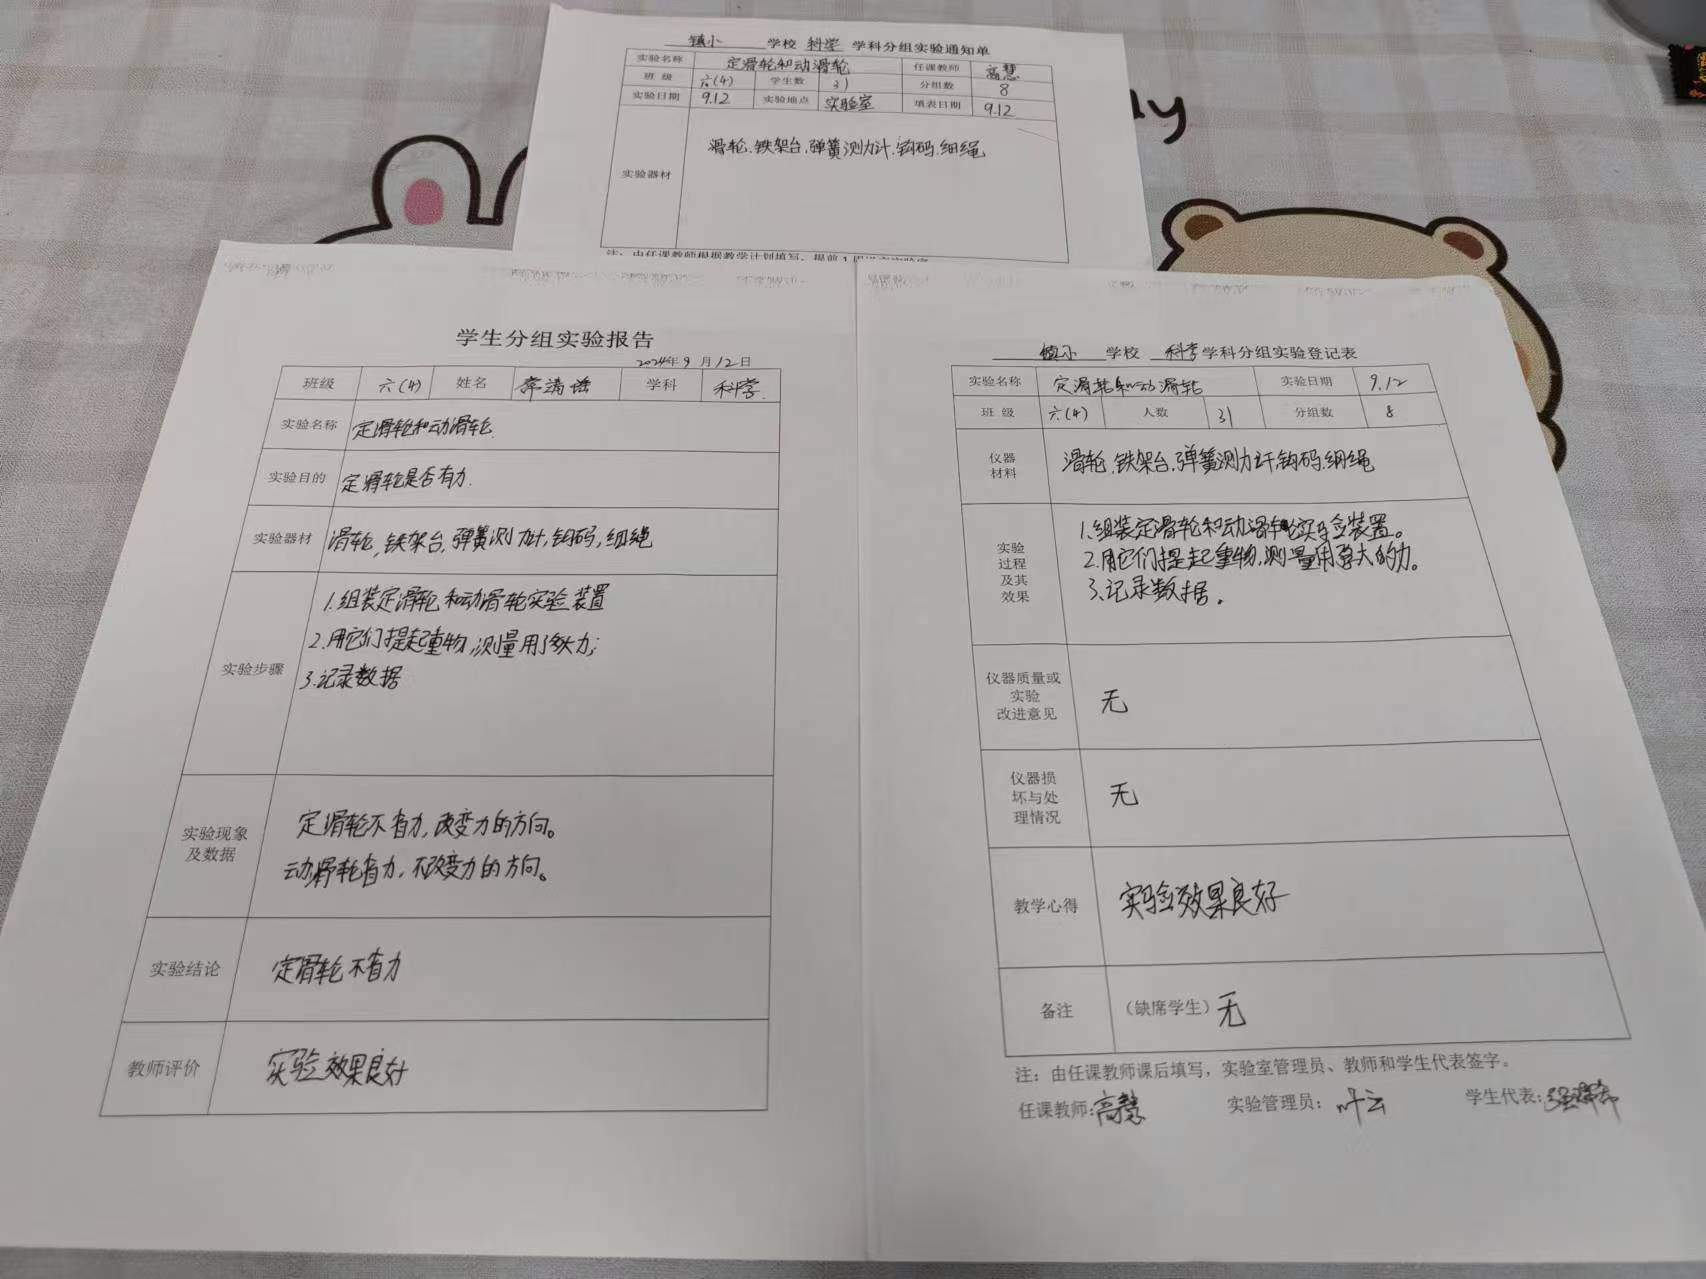 镇小 学校 科学 学科分组实验通知单
实验名称 定滑轮和动滑轮 任课教师 高慧
班 级 六(4) 学生数 31 分组数 8
实验日期 9.12 实验地点 实验室 填表日期 9.12
实验器材 滑轮、铁架台、弹簧测力计、钩码、细绳
学生分组实验报告
2024年9月12日
班级 六(4) 姓名 学科 科学
实验名称 定滑轮和动滑轮
实验目的 定滑轮是否省力.
实验器材 滑轮,铁架台,弹簧测力计,钩码,细绳
实验步骤
1.组装定滑轮和动滑轮实验装置
2.用它们提起重物,测量用了多大力;
3.记录数据
实验现象
及数据
定滑轮不省力,改变力的方向。
动滑轮省力,不改变力的方向。
实验结论 定滑轮不省力
教师评价 实验效果良好
镇小 学校 科学 学科分组实验登记表
实验名称 定滑轮和动滑轮 实验日期 9.12
班 级 六(4) 人数 31 分组数 8
仪器
材料
滑轮、铁架台、弹簧测力计、钩码、细绳
实验
过程
及其
效果
1.组装定滑轮和动滑轮实验装置。
2.用它们提起重物,测量用多大的力。
3.记录数据。
仪器质量或
实验
改进意见
无
仪器损
坏与处
理情况
无
教学心得 实验效果良好
备注 (缺席学生) 无
注:由任课教师课后填写,实验室管理员、教师和学生代表签字。
任课教师:高慧 实验管理员:叶云 学生代表: